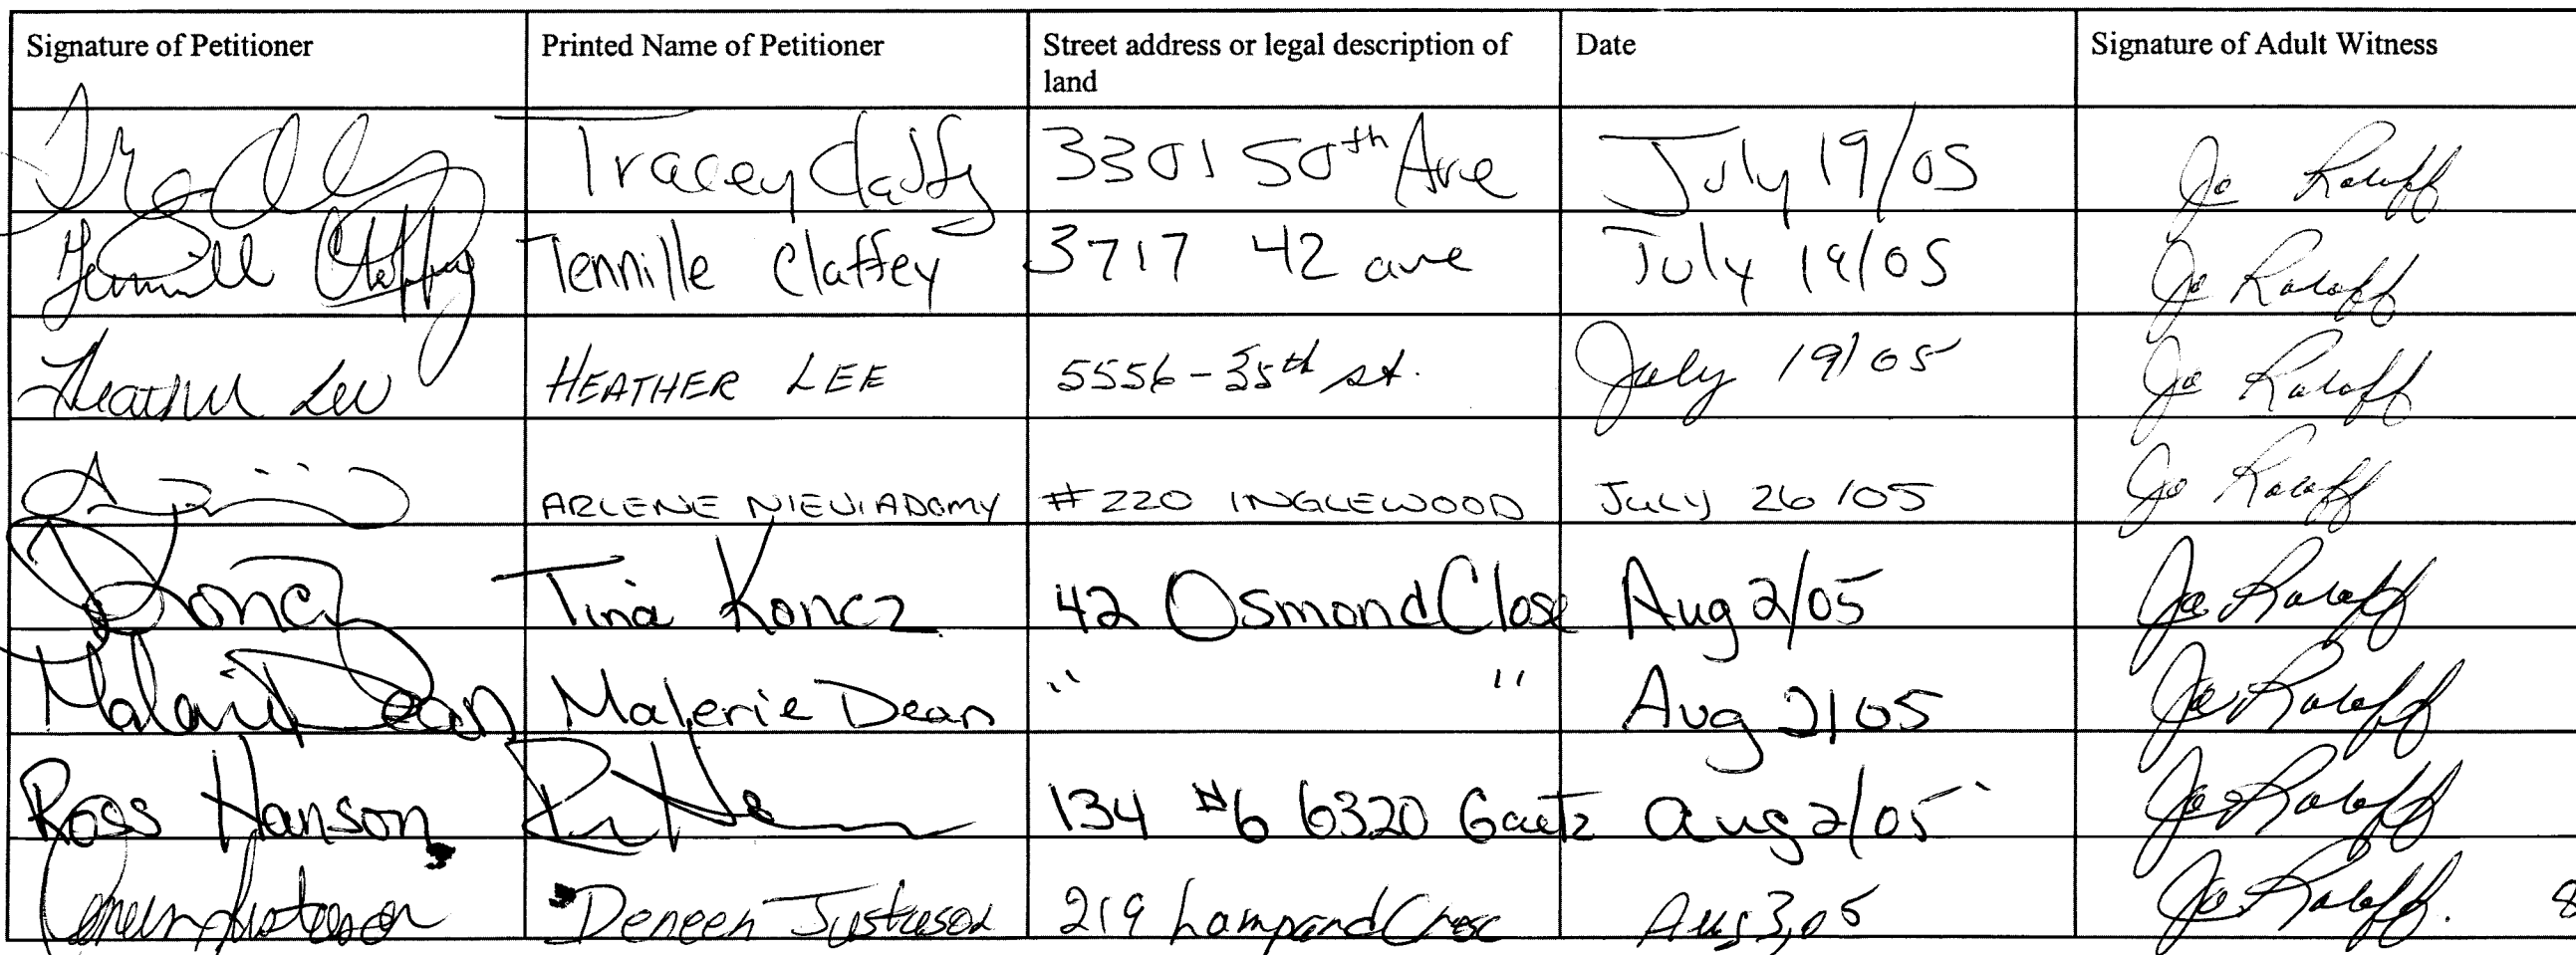 Signature of Petitioner Printed Name of Petitioner Street address or legal description of land Date Signature of Adult Witness
Tracey Claffey 3301 50th Ave July 19/05 Jo Roloff
Tennille Claffey Tennille Claffey 3717 42 ave July 19/05 Jo Roloff
Heather Lee HEATHER LEE 5556-35th st. July 19/05 Jo Roloff
ARLENE NIEVIADOMY #220 INGLEWOOD July 26/05 Jo Roloff
Koncz Tina Koncz 42 Osmond Close Aug 2/05 Jo Roloff
Malerie Dean Malerie Dean " " Aug 2/05 Jo Roloff
Ross Hanson 134 #6 6320 Gaetz Aug 2/05 Jo Roloff
Deneen Justason 219 Cresc Aug 3, 05 Jo Roloff. 8